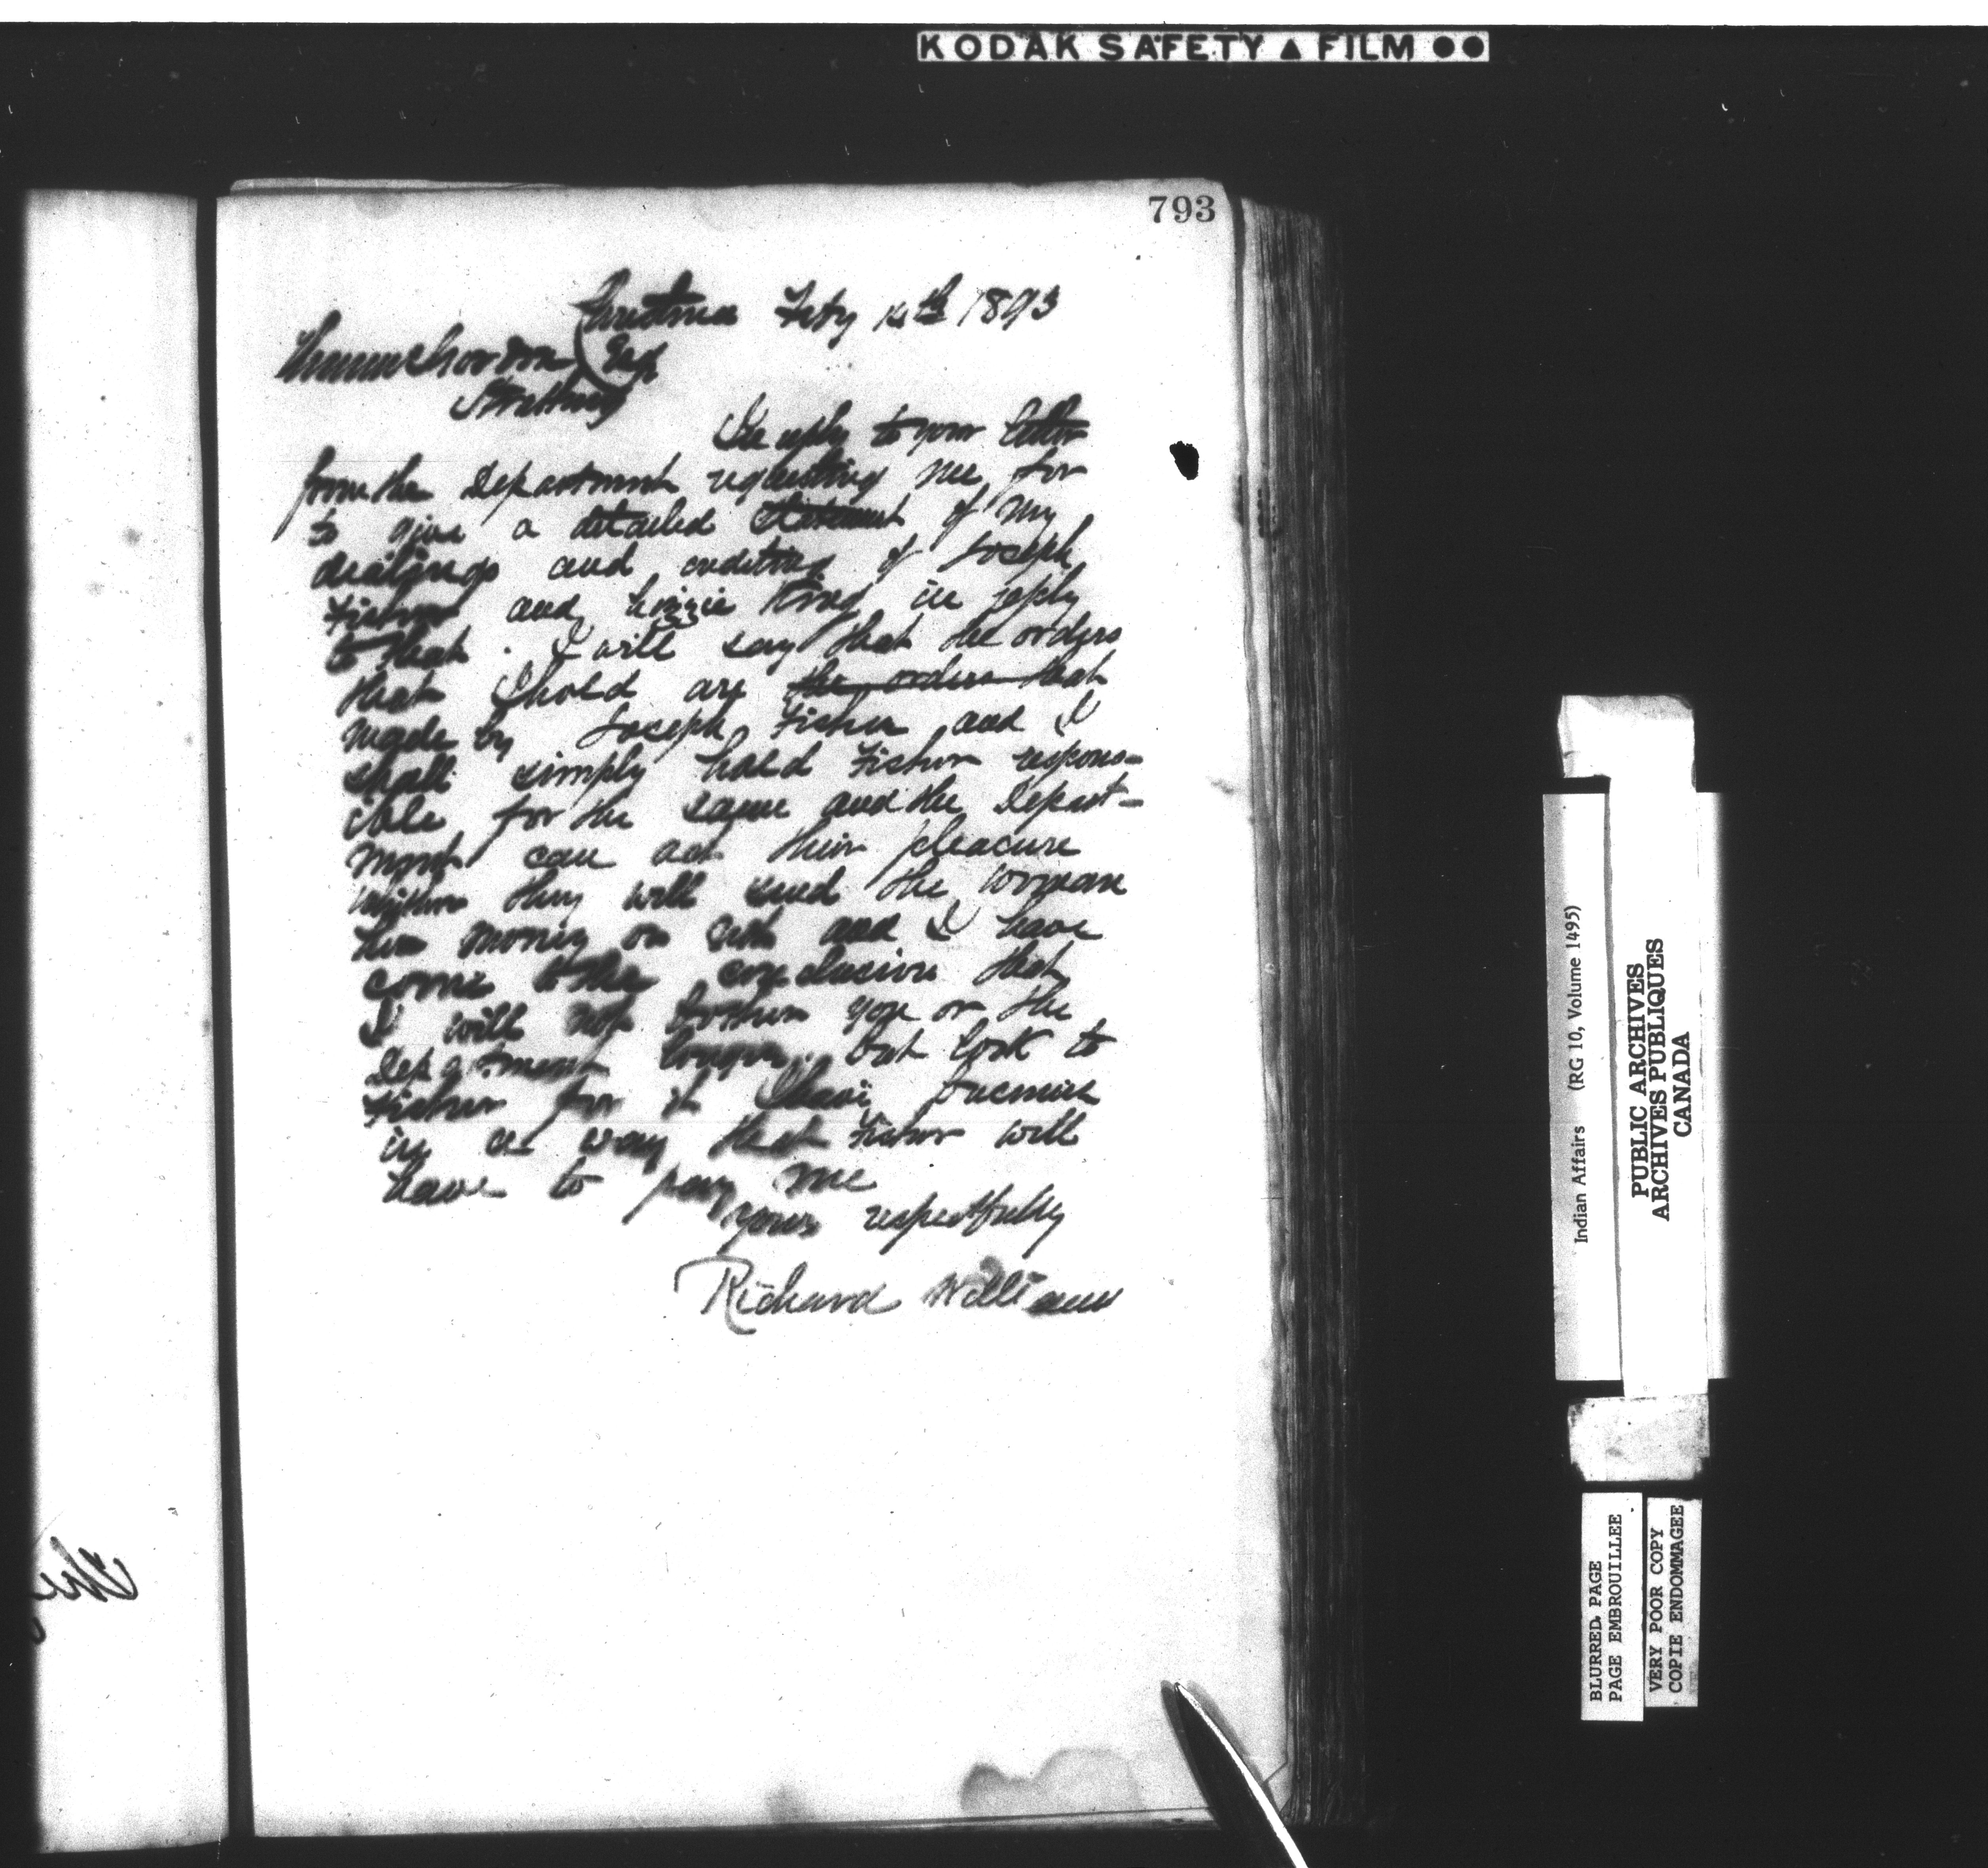 KODAK SAFETY ▲ FILM ●●
793
Feby 14th 1893
Thomas Gordon Esq
Strathroy
In reply to your letter
from the Department requesting me for
to give a detailed statement of my
dealings and crediting of Joseph
Fisher and Lizzie King in reply
to that . I will say that the orders
that I hold are the orders that
made by Joseph Fisher and I
shall simply hold Fisher respons-
ible for the same and the Depart-
ment can act their pleasure
wither they will send the woman
her money or not and I have
come to the conclusion that
I will not bother you or the
Department longer. but look to
Fisher for it I have
in a way that Fisher will
have to pay me
yours respectfully
Richard Williams
Indian Affairs (RG 10, Volume 1495)
PUBLIC ARCHIVES
ARCHIVES PUBLIQUES
CANADA
BLURRED PAGE
PAGE EMBROUILLEE
VERY POOR COPY
COPIE ENDOMMAGEE